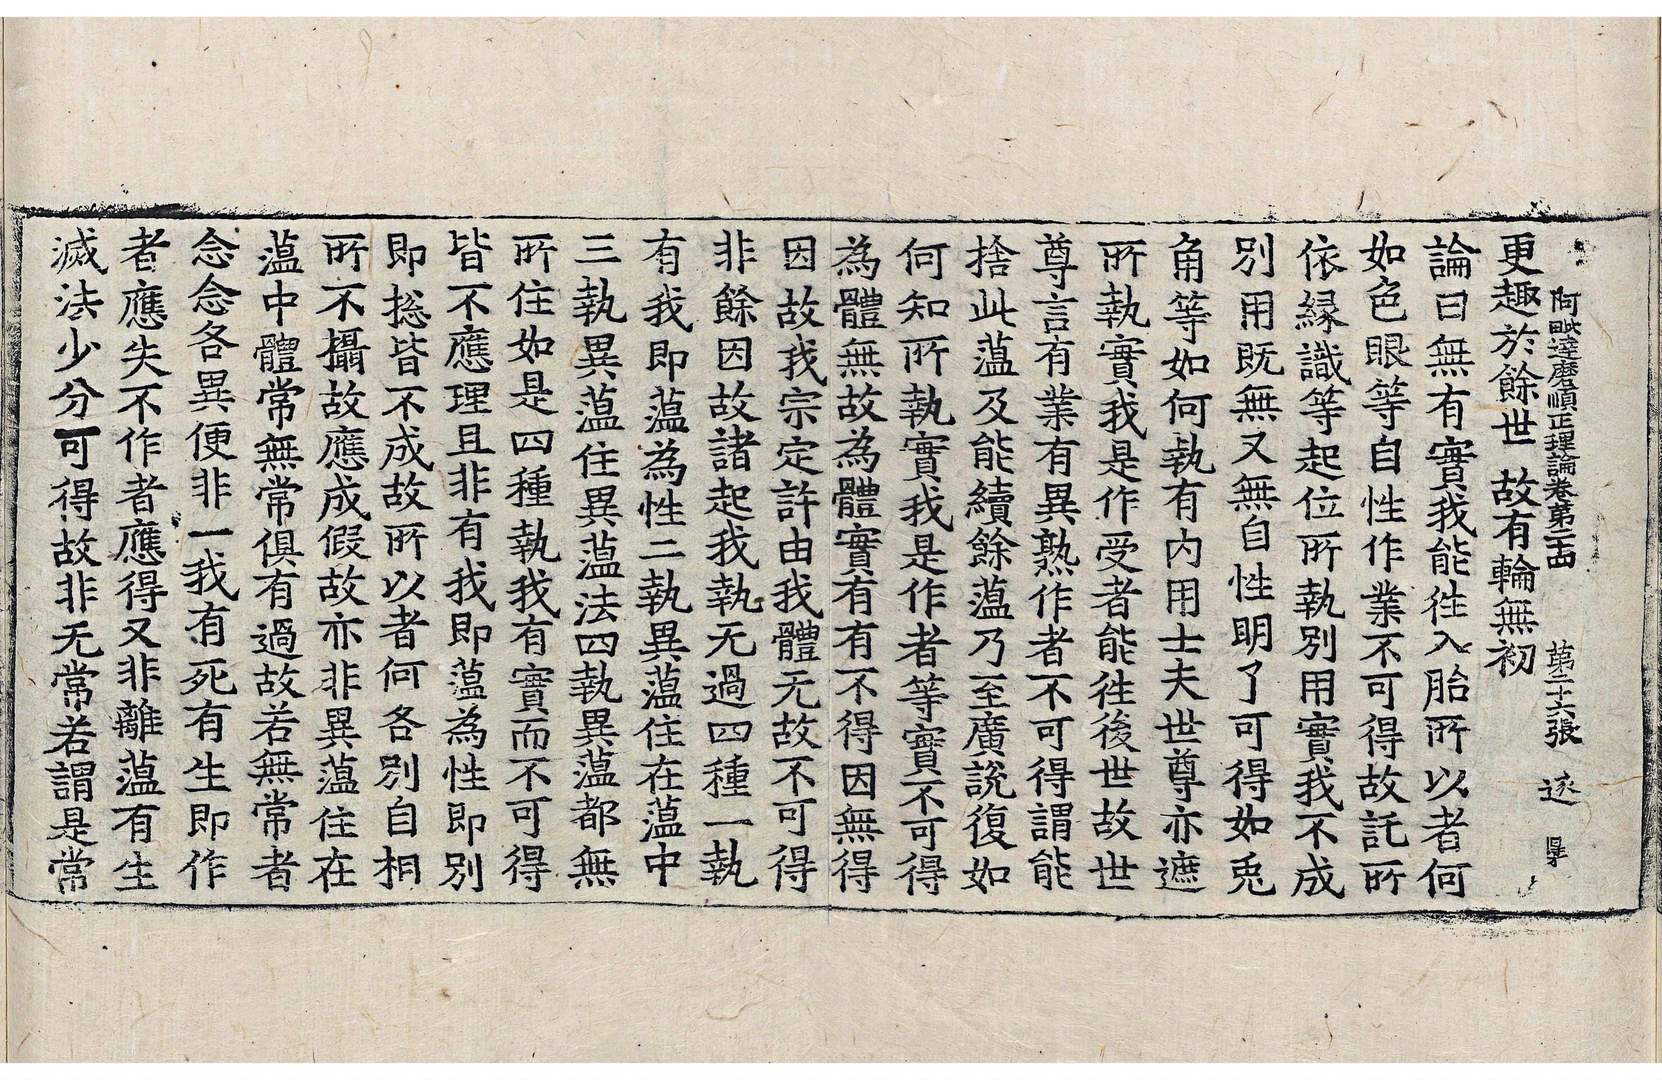 阿毗達磨順正理論卷第二十四　第二十六張　逐
更趣於餘世　故有輪無初
論曰無有實我能往入胎所以者何
如色眼等自性作業不可得故託所
依緣識等起位所執別用實我不成
別用既無又無自性明了可得如兎
角等如何執有內用士夫世尊亦遮
所執實我是作受者能往後世故世
尊言有業有異熟作者不可得謂能
捨此薀及能續餘薀乃至廣說復如
何知所執實我是作者等實不可得
為體無故為體實有有不得因無得
因故我宗定許由我體无故不可得
非餘因故諸起我執无過四種一執
有我即薀為性二執異薀住在薀中
三執異薀住異薀法四執異薀都無
所住如是四種執我有實而不可得
皆不應理且非有我即薀為性即別
即捴皆不成故所以者何各別自相
所不攝故應成假故亦非異薀住在
薀中體常無常俱有過故若無常者
念念各異便非一我有死有生即作
者應失不作者應得又非離薀有生
滅法少分可得故非无常若謂是常